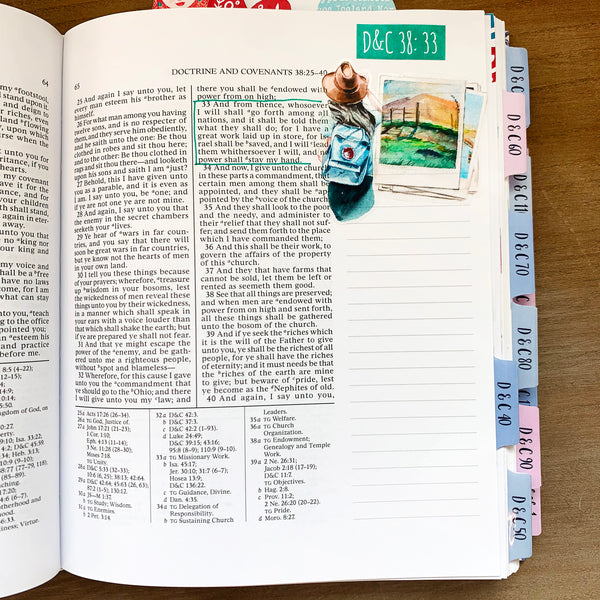 64
footstool,
and deign to
of Zion,
and flowing
upon whose
when the
ritance, if you
have it for the
ance, and for
your children
shall stand,
again in eter-
you, that ye
no king nor
your king and
my voice and
shall be a free
have no laws
I come, for I am
what can stay
unto you, teach
to the office
appointed you;
esteem his
and practice
before me.
65
DOCTRINE AND COVENANTS 38:25–40
D&C 38:33
25 And again I say unto you, let
every man esteem his brother as
himself.
26 For what man among you having
twelve sons, and is no respecter of
them, and they serve him obediently,
and he saith unto the one: Be thou
clothed in robes and sit thou here;
and to the other: Be thou clothed in
rags and sit thou there—and looketh
upon his sons and saith I am just?
27 Behold, this I have given unto
you as a parable, and it is even as
I am. I say unto you, be one; and
if ye are not one ye are not mine.
28 And again, I say unto you that
the enemy in the secret chambers
seeketh your lives.
29 Ye hear of wars in far coun-
tries, and you say that there will
soon be great wars in far countries,
but ye know not the hearts of men
in your own land.
30 I tell you these things because
of your prayers; wherefore, treasure
up wisdom in your bosoms, lest
the wickedness of men reveal these
things unto you by their wickedness,
in a manner which shall speak in
your ears with a voice louder than
that which shall shake the earth; but
if ye are prepared ye shall not fear.
31 And that ye might escape the
power of the enemy, and be gath-
ered unto me a righteous people,
without spot and blameless—
32 Wherefore, for this cause I gave
unto you the commandment that
ye should go to the Ohio; and there
I will give unto you my law; and
there you shall be endowed with
power from on high;
33 And from thence, whosoever
I will shall go forth among all
nations, and it shall be told them
what they shall do; for I have a
great work laid up in store, for Is-
rael shall be saved, and I will lead
them whithersoever I will, and no
power shall stay my hand.
34 And now, I give unto the church
in these parts a commandment, that
certain men among them shall be
appointed, and they shall be ap-
pointed by the voice of the church;
35 And they shall look to the poor
and the needy, and administer to
their relief that they shall not suf-
fer; and send them forth to the place
which I have commanded them;
36 And this shall be their work, to
govern the affairs of the property
of this church.
37 And they that have farms that
cannot be sold, let them be left or
rented as seemeth them good.
38 See that all things are preserved;
and when men are endowed with
power from on high and sent forth,
all these things shall be gathered
unto the bosom of the church.
39 And if ye seek the riches which
it is the will of the Father to give
unto you, ye shall be the richest of all
people, for ye shall have the riches
of eternity; and it must needs be that
the riches of the earth are mine
to give; but beware of pride, lest
ye become as the Nephites of old.
40 And again, I say unto you,
25a Acts 17:26 (26–34).
26a TG God, Justice of.
27a John 17:21 (21–23);
1 Cor. 1:10;
Eph. 4:13 (11–14);
3 Ne. 11:28 (28–30);
Moses 7:18.
TG Unity.
28a D&C 5:33 (32–33);
10:6 (6, 25); 38:13; 42:64.
29a D&C 42:64; 45:63 (26, 63);
87:2 (1–5); 130:12.
30a JS—M 1:37.
b TG Study; Wisdom.
31a TG Enemies.
b 2 Pet. 3:14.
32a D&C 42:3.
b D&C 37:3.
c D&C 42:2 (1–93).
d Luke 24:49;
D&C 39:15; 43:16;
95:8 (8–9); 110:9 (9–10).
33a TG Missionary Work.
b Isa. 45:17;
Jer. 30:10; 31:7 (6–7);
Hosea 13:9;
D&C 136:22.
c TG Guidance, Divine.
d Dan. 4:35.
34a TG Delegation of
Responsibility.
b TG Sustaining Church
Leaders.
35a TG Welfare.
36a TG Church
Organization.
38a TG Endowment;
Genealogy and Temple
Work.
39a 2 Ne. 26:31;
Jacob 2:18 (17–19);
D&C 11:7.
TG Objectives.
b Hag. 2:8.
c Prov. 11:2;
2 Ne. 26:20 (20–22).
TG Pride.
d Moro. 8:27.
D&C 60
D&C 111
D&C 70
D&C 80
D&C 40
D&C 90
D&C 50